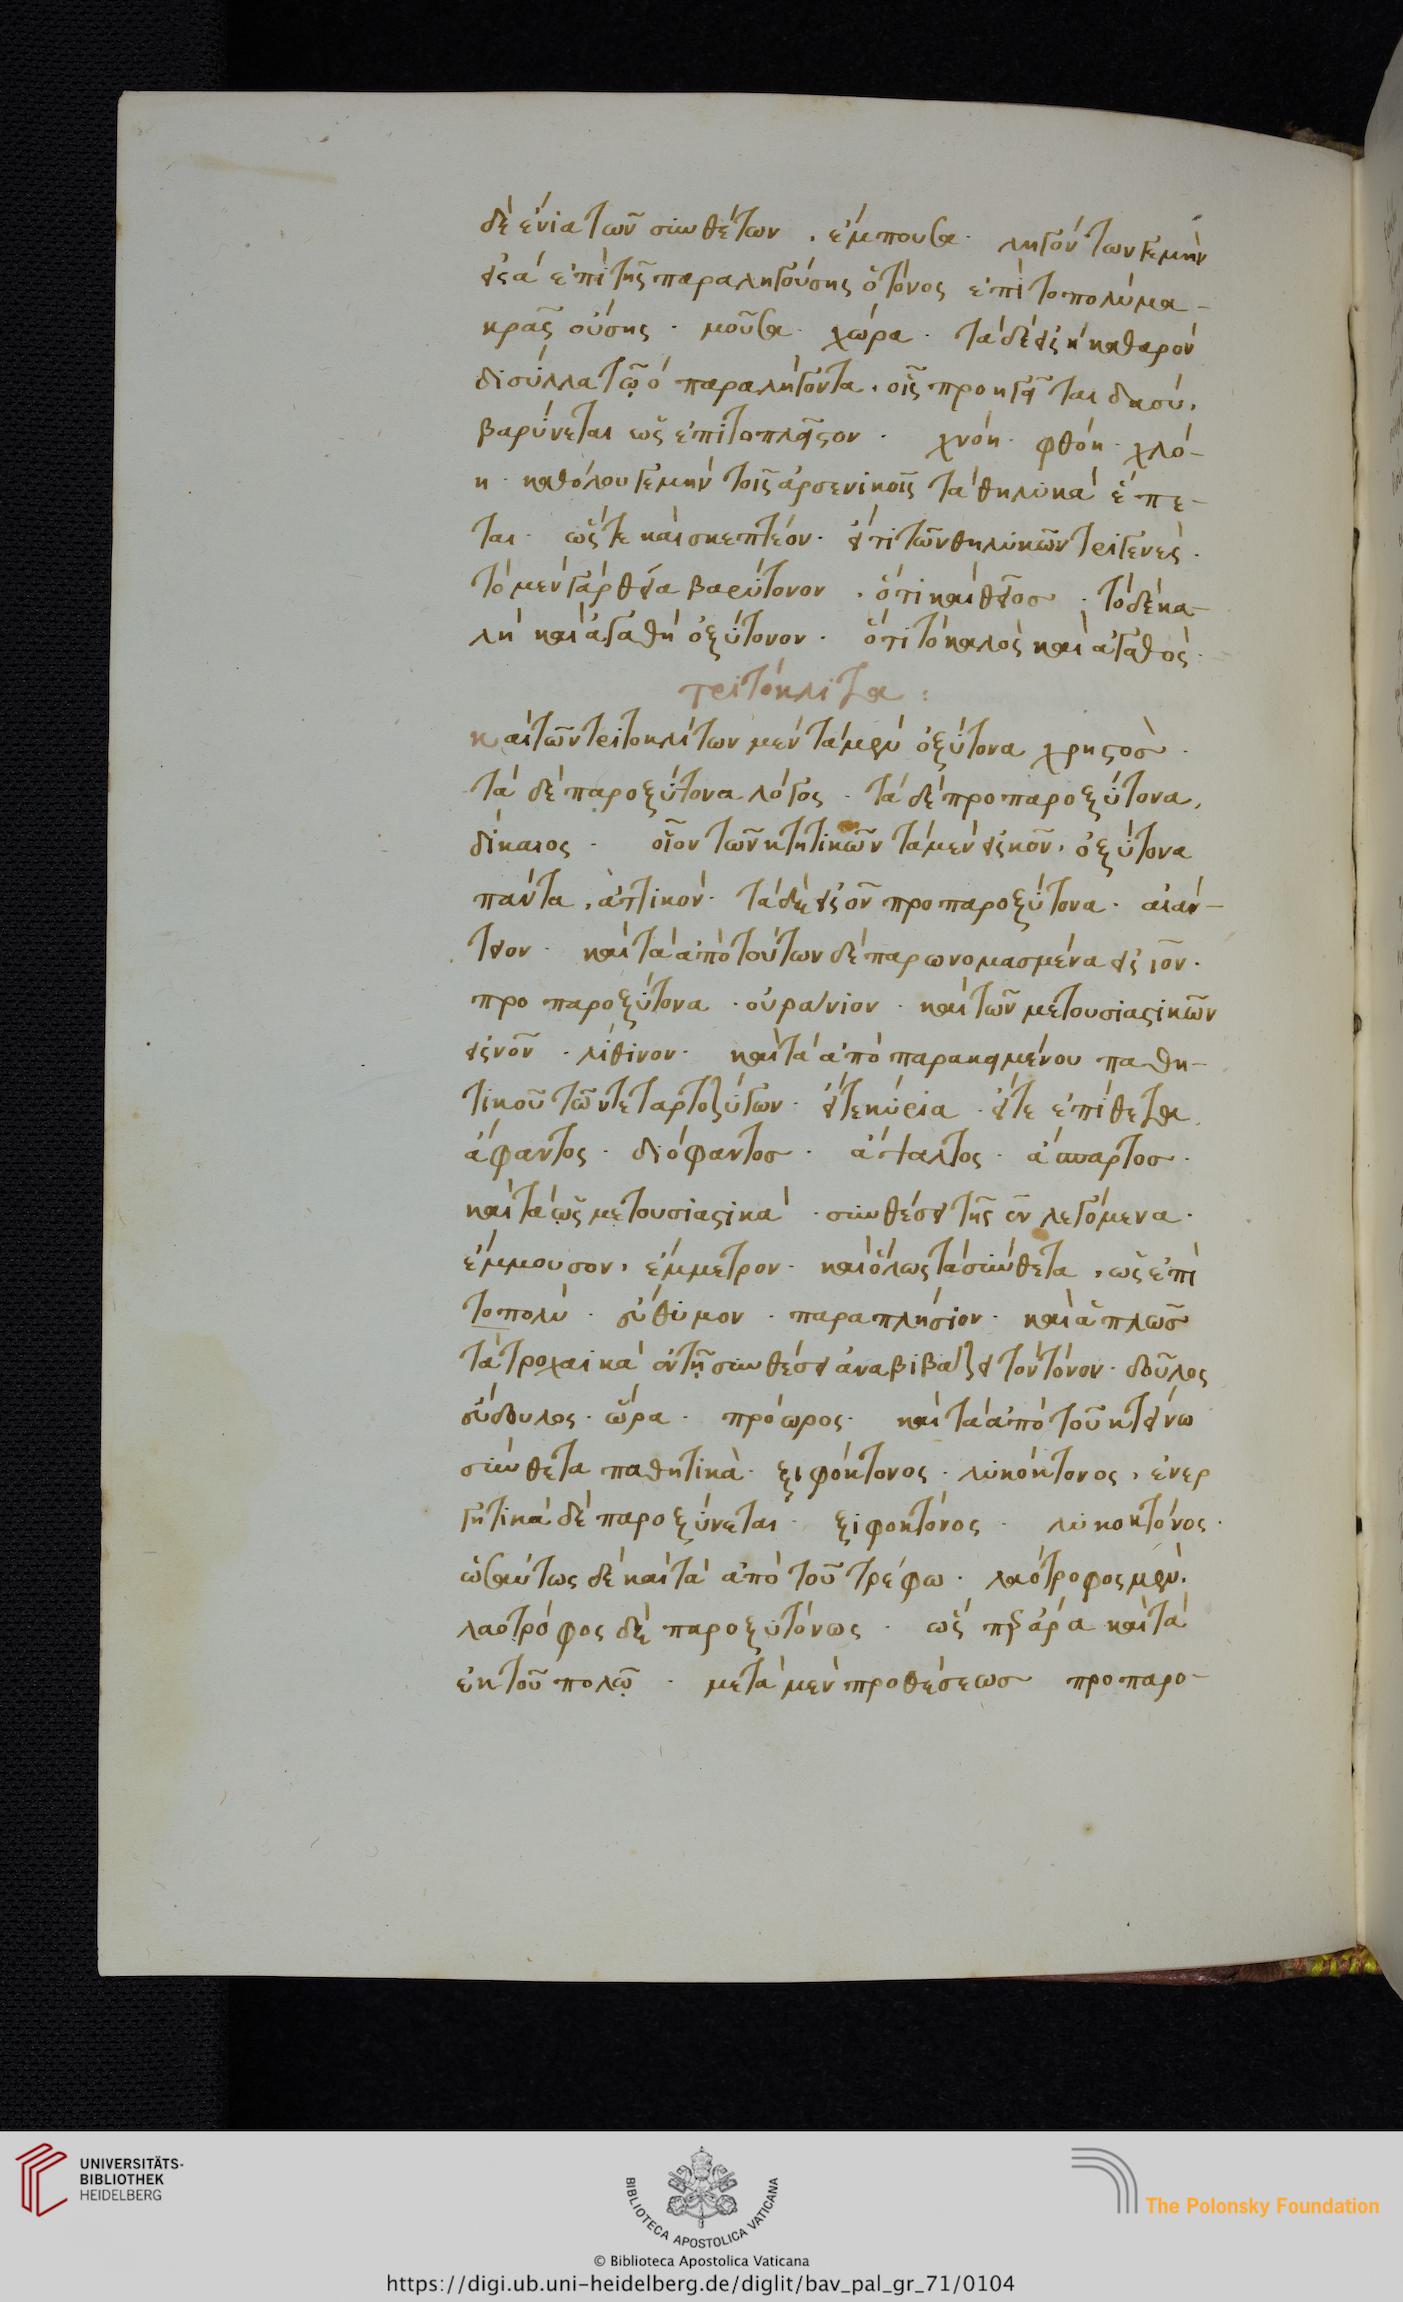 δὲ ἔνια τῶν συνθέτων . ἔμπουσα · ληγόντων γεμὴν
εἰς ᾱ ἐπὶ τῆς παραληγούσης ὁ τόνος ἐπὶ τοπολὺ μα-
κρᾶς οὔσης · μοῦσα · χώρα · τὰ δὲ εἰς η καθαρὸν
δισύλλα τῷ ο παραλήγοντα · οἷς προηγεῖται δασύ,
βαρύνεται ὡς ἐπὶ τοπλεῖστον · χνόη · φθόη · χλό-
η · καθόλου γεμὴν τοῖς ἀρσενικοῖς τὰ θηλυκὰ ἕπε-
ται · ὥστε καὶ σκεπτέον · ἐπὶ τῶν θηλυκῶν τριγενές ·
τὸ μὲν γὰρ θεία βαρύτονον · ὅτι καὶ θεῖος · τὸ δὲ κα-
λὴ καὶ ἀγαθὴ ὀξύτονον · ὅτι τὸ καλὸς καὶ ἀγαθός ·
τριτόκλιτα :
καὶ τῶν τριτοκλίτων μὲν τὰ μὲν ὀξύτονα χρηστὸς ·
τὰ δὲ παροξύτονα λόγος · τὰ δὲ προπαροξύτονα,
δίκαιος · οἷον τῶν κτητικῶν τὰ μὲν εἰς κον · ὀξύτονα
πάντα , ἀττικόν · τὰ δὲ εἰς ον προπαροξύτονα · αἰάν-
τειον · καὶ τὰ ἀπὸ τούτων δὲ παρωνομασμένα εἰς ιον ·
προπαροξύτονα · οὐράνιον · καὶ τῶν μετουσιαστικῶν
εἰς νον · λίθινον · καὶ τὰ ἀπὸ παρακειμένου παθη-
τικοῦ τῶν τεταρτοζύγων · εἴτε κύρια · εἴτε ἐπίθετα
ἄφαντος · διόφαντος · ἄψαλτος · ἄσπαρτος ·
καὶ τὰ ὡς μετουσιαστικὰ · συνθέσει τῆς ἐν λεγόμενα ·
ἔμμουσον , ἔμμετρον · καὶ ὅλως τὰ σύνθετα , ὡς ἐπὶ
τοπολύ · εὔθυμον · παραπλήσιον · καὶ ἁπλῶς
τὰ τροχαικὰ ἐν τῇ συνθέσει ἀναβιβάζει τὸν τόνον · δοῦλος
σύδουλος · ὥρα · πρόωρος · καὶ τὰ ἀπὸ τοῦ κτείνω
σύνθετα παθητικὰ · ξιφόκτονος · λυκόκτονος , ἐνερ
γητικὰ δὲ παροξύνεται · ξιφοκτόνος · λυκοκτόνος ·
ὡσαύτως δὲ καὶ τὰ ἀπὸ τοῦ τρέφω · λαότροφος μὲν ·
λαοτρόφος δὲ παροξυτόνως · ὡς καὶ τὰ
ἐκ τοῦ πολῶ · μετὰ μὲν προθέσεως προπαρο-
UNIVERSITÄTS-
BIBLIOTHEK
HEIDELBERG
BIBLIOTECA APOSTOLICA VATICANA
The Polonsky Foundation
© Biblioteca Apostolica Vaticana
https://digi.ub.uni-heidelberg.de/diglit/bav_pal_gr_71/0104